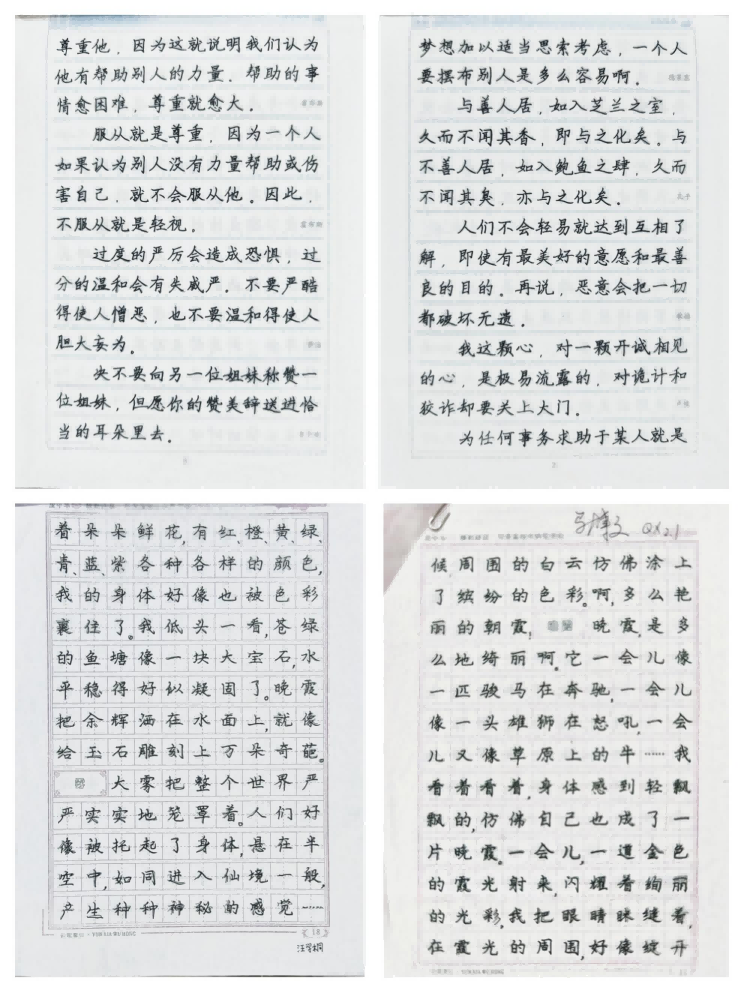 尊重他，因为这就说明我们认为
他有帮助别人的力量．帮助的事
情愈困难，尊重就愈大。
服从就是尊重，因为一个人
如果认为别人没有力量帮助或伤
害自己，就不会服从他。因此，
不服从就是轻视。
过度的严厉会造成恐惧，过
分的温和会有失威严。不要严酷
得使人憎恶，也不要温和得使人
胆大妄为。
央不要向另一位姐妹称赞一
位姐妹，但愿你的赞美辞送进恰
当的耳朵里去。
梦想加以适当思索考虑，一个人
要摆布别人是多么容易啊。
与善人居，如入芝兰之室，
久而不闻其香，即与之化矣。与
不善人居，如入鲍鱼之肆，久而
不闻其臭，亦与之化矣。
孔子
人们不会轻易就达到互相了
解，即使有最美好的意愿和最善
良的目的。再说，恶意会把一切
都破坏无遗。
我这颗心，对一颗开诚相见
的心，是极易流露的，对诡计和
狡诈却要关上大门。
卢梭
为任何事务求助于某人就是
着朵朵鲜花，有红、橙、黄、绿、
青、蓝、紫各种各样的颜色，
我的身体好像也被色彩
裹住了。我低头一看，苍绿
的鱼塘像一块大宝石，水
平稳得好似凝固了。晚霞
把余辉洒在水面上，就像
给玉石雕刻上万朵奇葩。
雾 大雾把整个世界严
严实实地笼罩着。人们好
像被托起了身体，悬在半
空中，如同进入仙境一般，
产生种种神秘的感觉……
18
汪学桐
QX21
候，周围的白云仿佛涂上
了缤纷的色彩。啊，多么艳
丽的朝霞，晚霞，是多
么地绮丽啊。它一会儿像
一匹骏马在奔驰，一会儿
像一头雄狮在怒吼，一会
儿又像草原上的牛……我
看着看着，身体感到轻飘
飘的，仿佛自己也成了一
片晚霞。一会儿，一道金色
的霞光射来，闪耀着绚丽
的光彩，我把眼睛眯缝着，
在霞光的周围，好像绽开